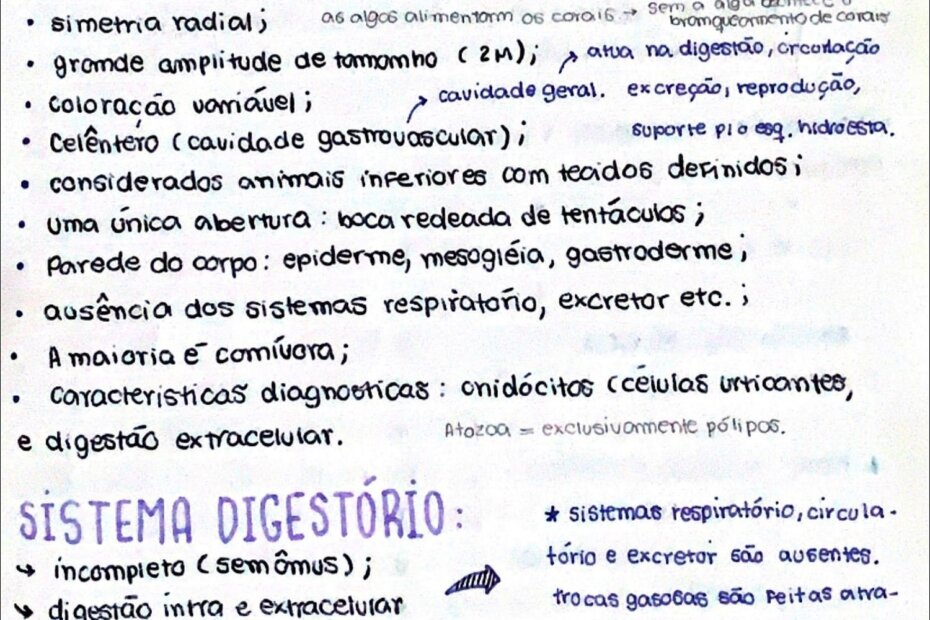 • simetria radial; as algas alimentam os corais → sem a alga acontece o
branqueamento de corais
• grande amplitude de tamanho (2M); ↗ atua na digestão, circulação
• coloração variável; ↗ cavidade geral. excreção, reprodução,
• Celêntero (cavidade gastrovascular); suporte p/ o esq. hidroesta.
• considerados animais inferiores com tecidos definidos;
• uma única abertura: boca redeada de tentáculos;
• Parede do corpo: epiderme, mesogléia, gastroderme;
• ausência dos sistemas respiratório, excretor etc.;
• A maioria é carnívora;
• características diagnosticas: cnidócitos (células urticantes,
e digestão extracelular. Atozoa = exclusivamente pólipos.
SISTEMA DIGESTÓRIO:
* sistemas respiratório, circula-
↳ incompleto (sem ômus); tório e excretor são ausentes.
↳ digestão intra e extracelular trocas gasosas são feitas atra-